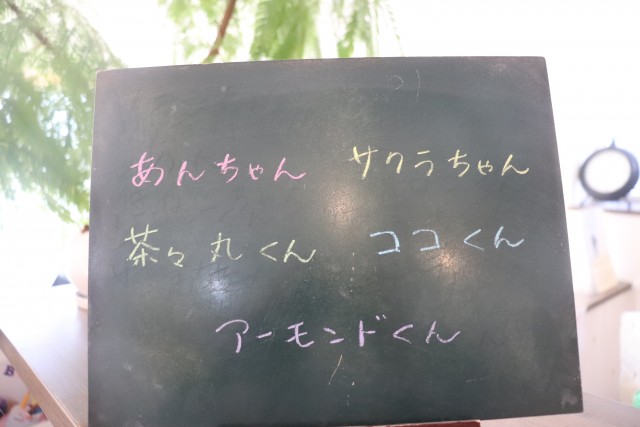 あんちゃん サクラちゃん
茶々丸くん ココくん
アーモンドくん